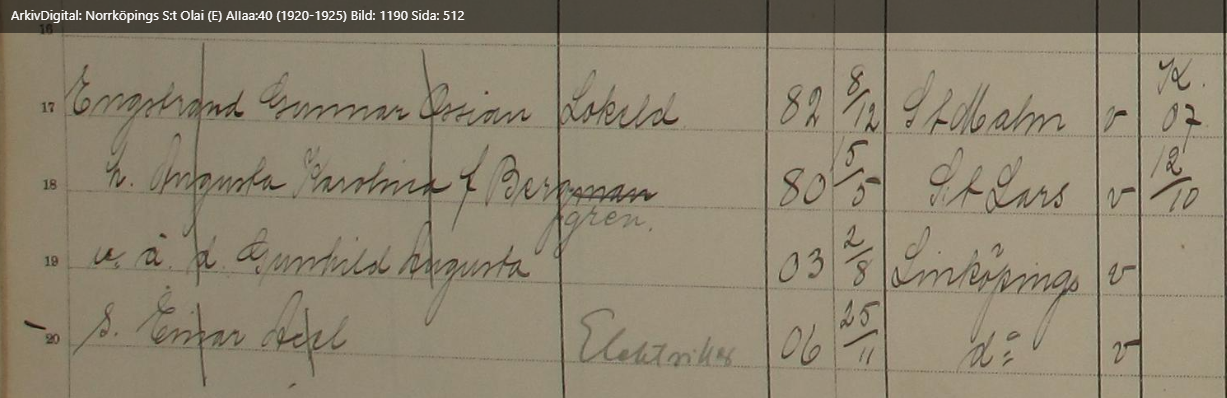 ArkivDigital: Norrköpings S:t Olai (E) AIIaa:40 (1920-1925) Bild: 1190 Sida: 512
16
17 Engstrand Gunnar Ossian Lokeld 82 8/12 S:t Malm v K. 07
18 h. Augusta Karolina f Bergman 80 5/5 S:t Lars v 12/10
gren.
19 u. ä. d. Gunhild Augusta 03 2/8 Linköpings v
20 s. Einar Axel Elektriker 06 25/11 d:o v